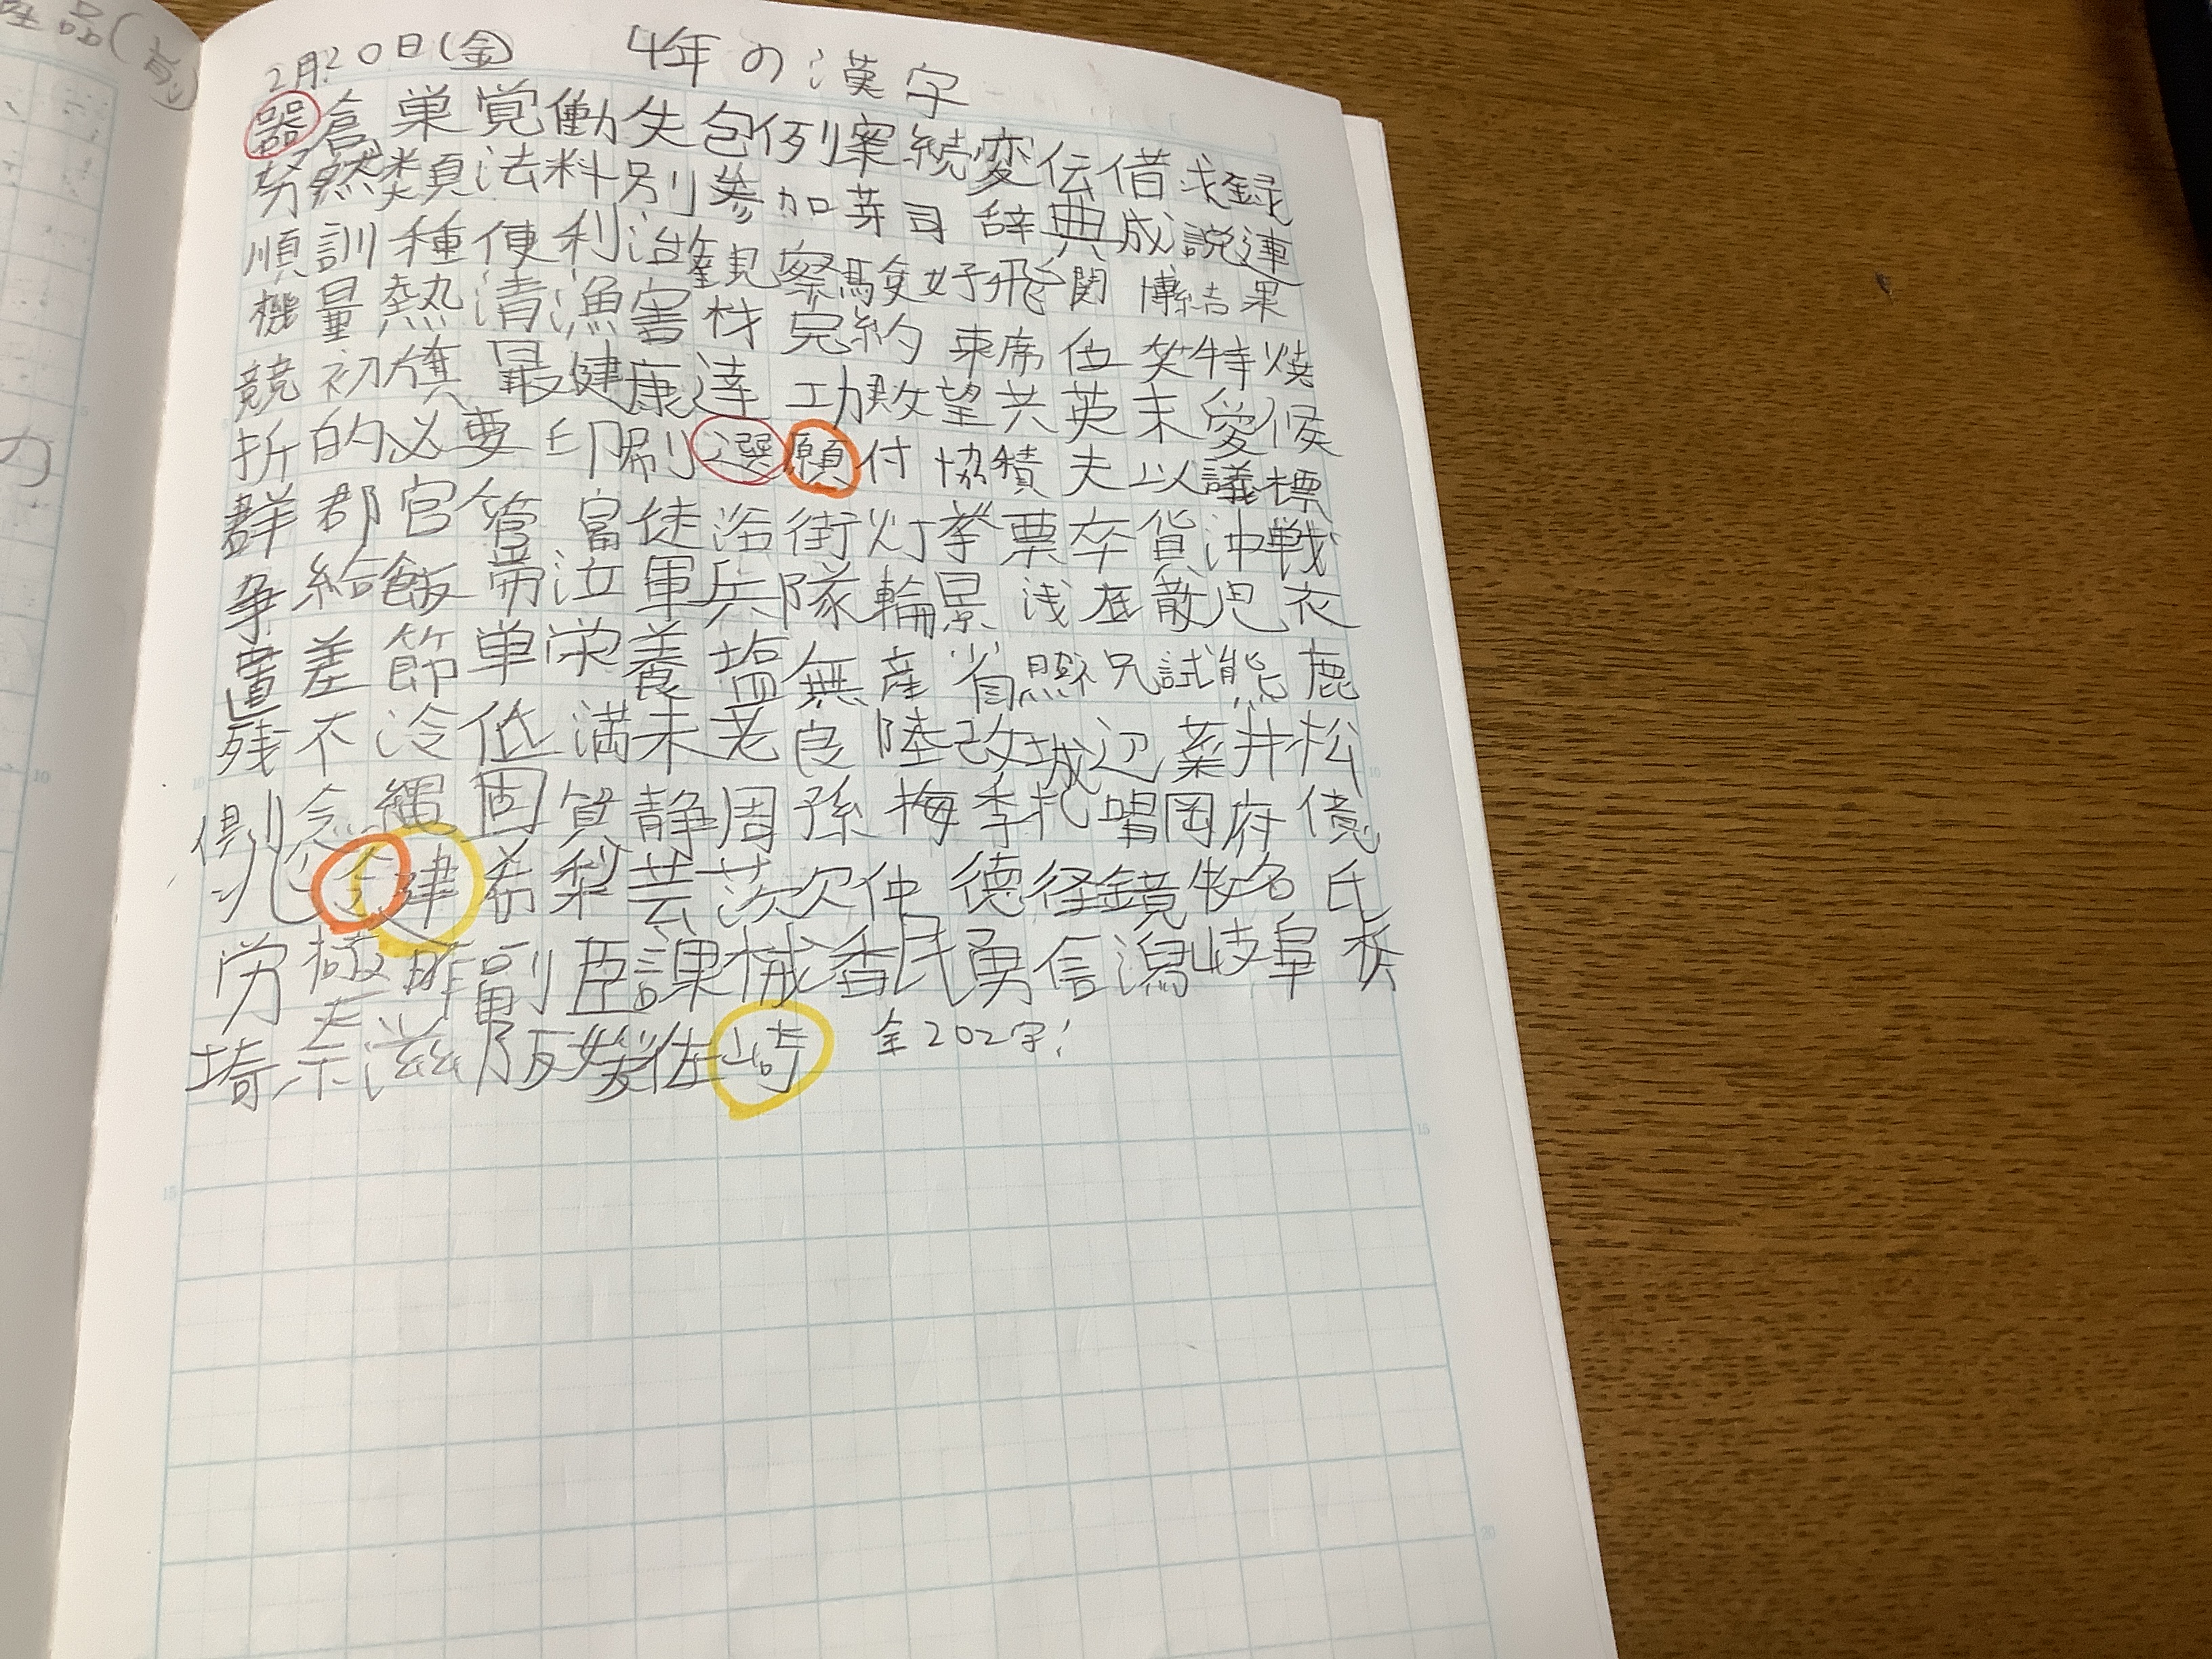 産品(
2月20日(金) 4年の漢字
器倉巣覚働失包例案続変伝借求録
努然類法料別参加芽司辞典成説連
順訓種便利治観察験好飛関博結果
機量熱清漁害材完約束席位笑特焼
競初旗最健康達功敗望共英末愛候
折的必要印刷選願付協積夫以議標
群郡官管富徒浴街灯挙票卒貨沖戦
争給飯帯泣軍兵隊輪景浅底散児衣
置差節単栄養塩無産省照兄試熊鹿
残不冷低満未老良陸改城辺菜井松
側念縄固貨静周孫梅季札唱岡府億
兆令建希梨芸茨欠仲徳径鏡牧各氏
労極昨副臣課械香民勇信潟岐阜
埼奈滋阪媛佐崎 全202字!